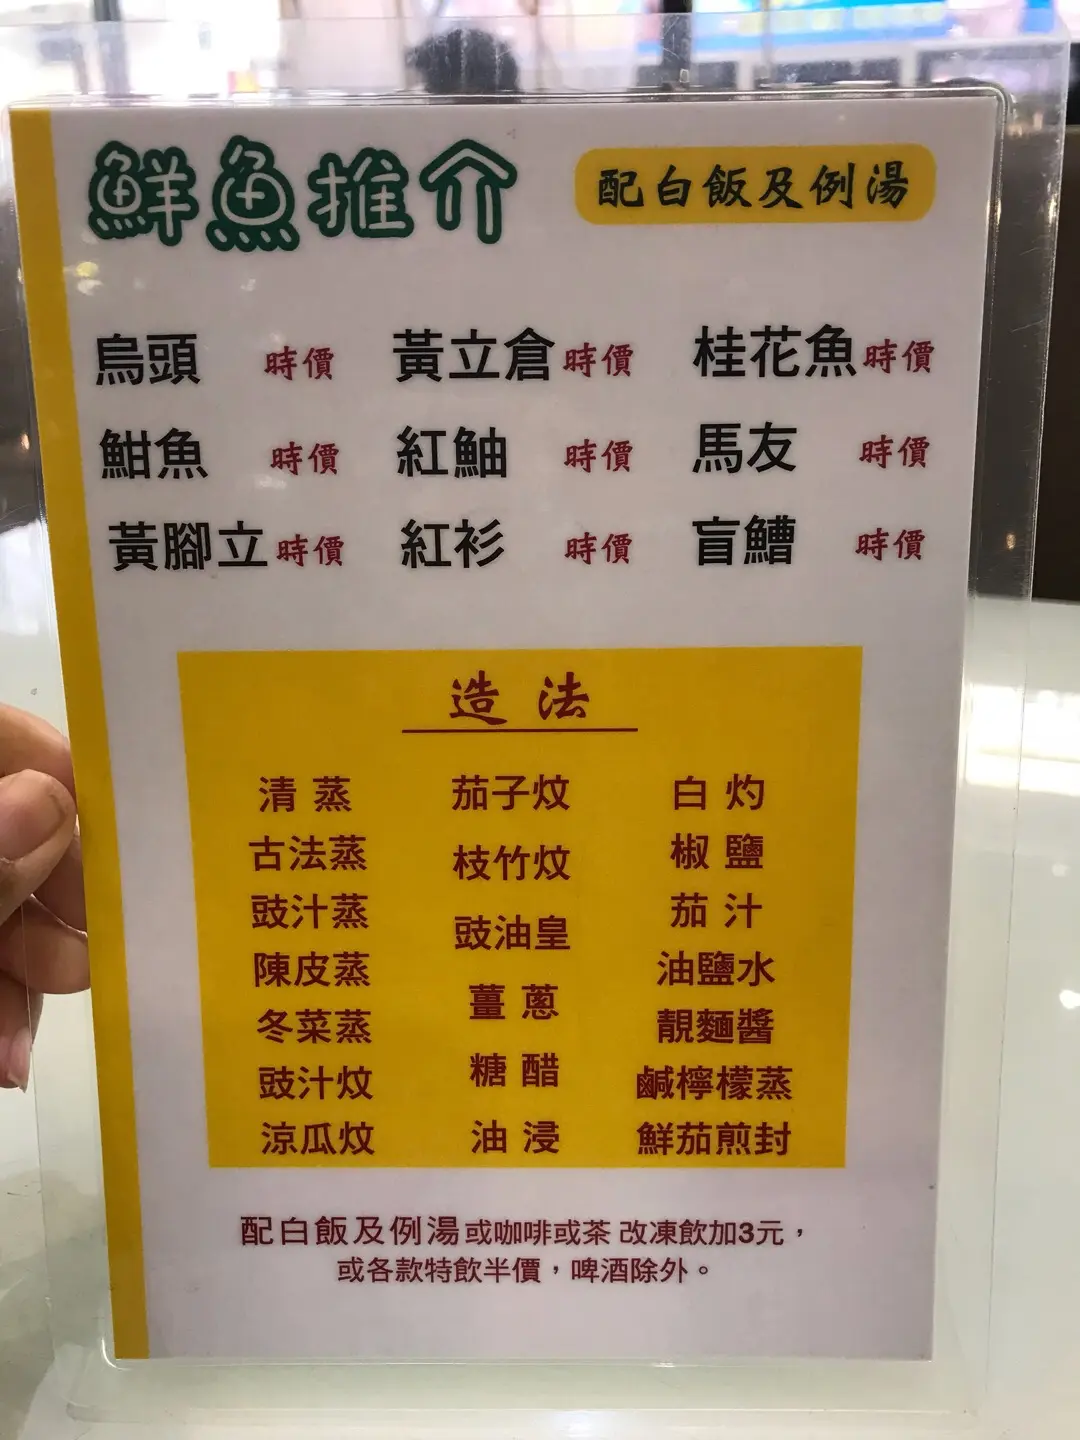 鮮魚推介 配白飯及例湯
烏頭 時價 黃立倉 時價 桂花魚 時價
魽魚 時價 紅鮋 時價 馬友 時價
黃腳立 時價 紅衫 時價 盲鰽 時價
造法
清蒸 茄子炆 白灼
古法蒸 枝竹炆 椒鹽
豉汁蒸 豉油皇 茄汁
陳皮蒸 薑蔥 油鹽水
冬菜蒸 糖醋 靚麵醬
豉汁炆 油浸 鹹檸檬蒸
涼瓜炆 鮮茄煎封
配白飯及例湯或咖啡或茶 改凍飲加3元，
或各款特飲半價，啤酒除外。